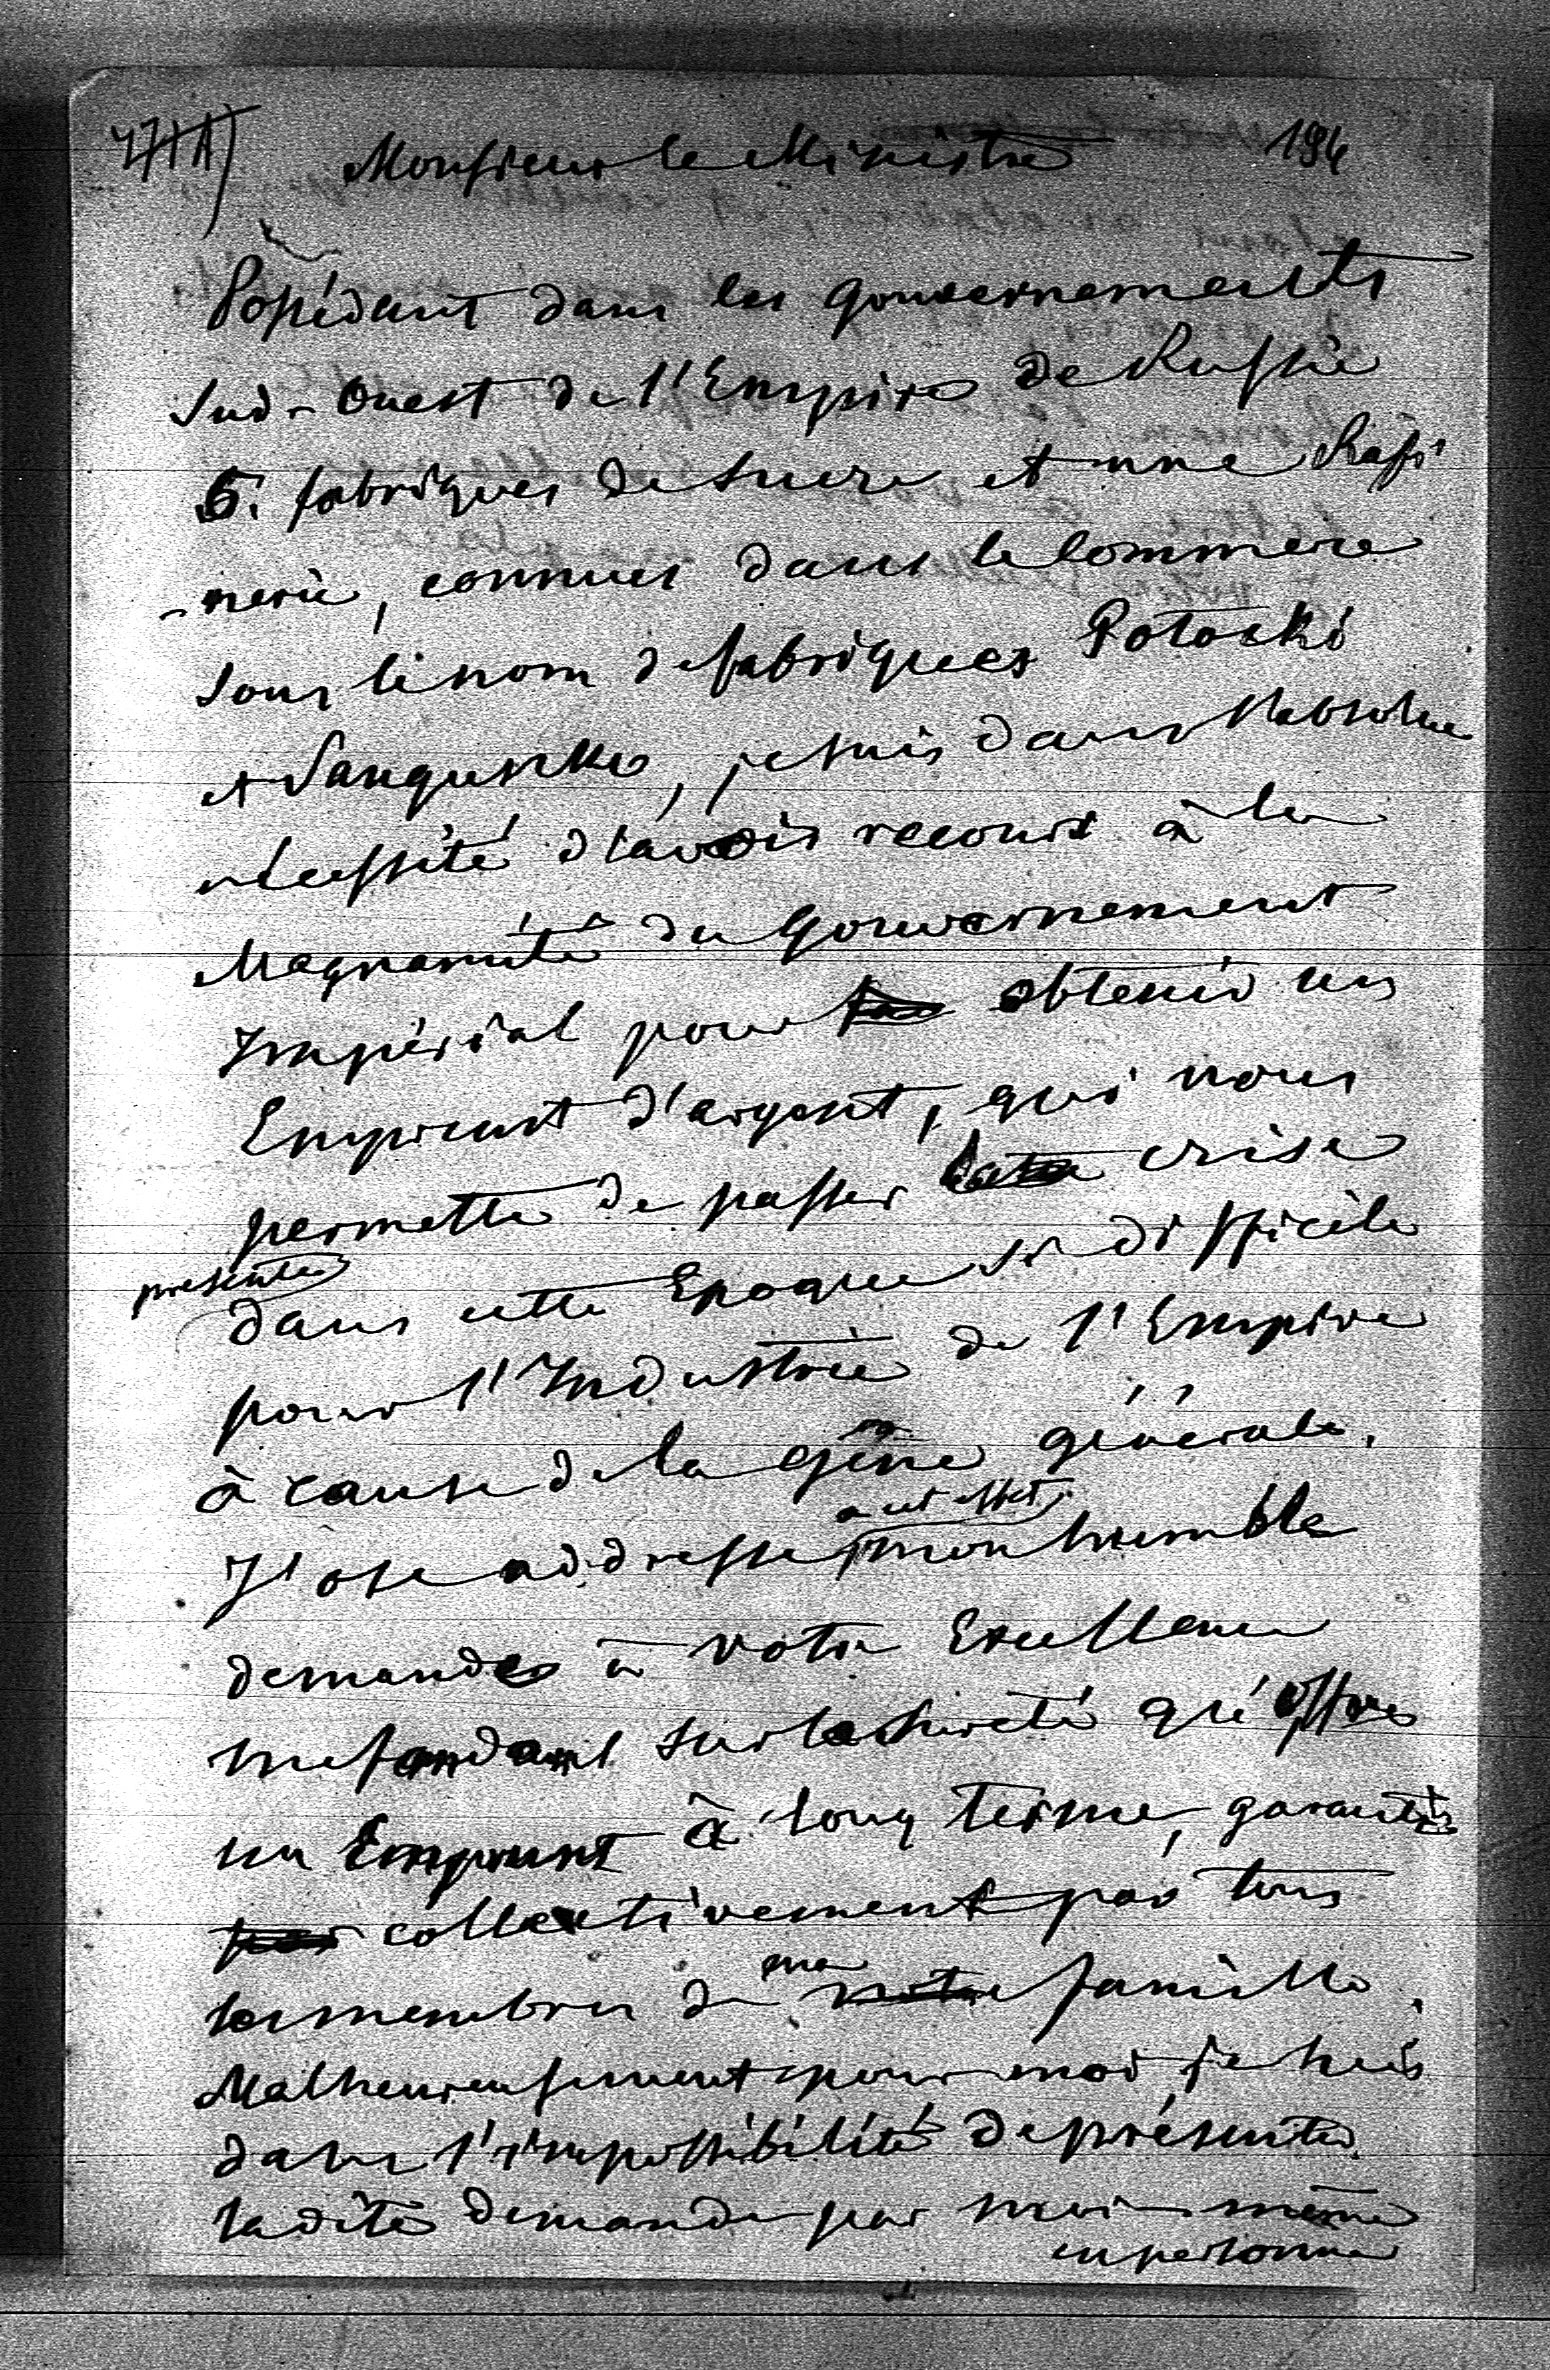 Monsieur le Ministre 194
Possédant dans les gouvernements
Sud-Ouest de l'Empire de Russie
5. fabriques de sucre et une Raffi
-nerie, connues dans le Commerce
sous le nom de fabriques Potocki
et Sangusko, je suis dans l'absolue
nécessité d'avoir recours à la
Magnanimité du Gouvernement
Impérial pour obtenir un
Emprunt d'argent, qui nous
permette de passer la crise
presente
dans cette Epoque si difficile
pour l'Industrie de l'Empire
à cause de la gêne générale.
à cet effet
J'ose addresser mon humble
demande à votre Excellence
me fondant sur la sûreté qu'offre
un Emprunt à long terme, garanti
par collectivement par tous
ma
les membres de notre famille.
Malheureusement pour moi je suis
dans l'impossibilité de présenter
la dite demande par moi-même
en personne